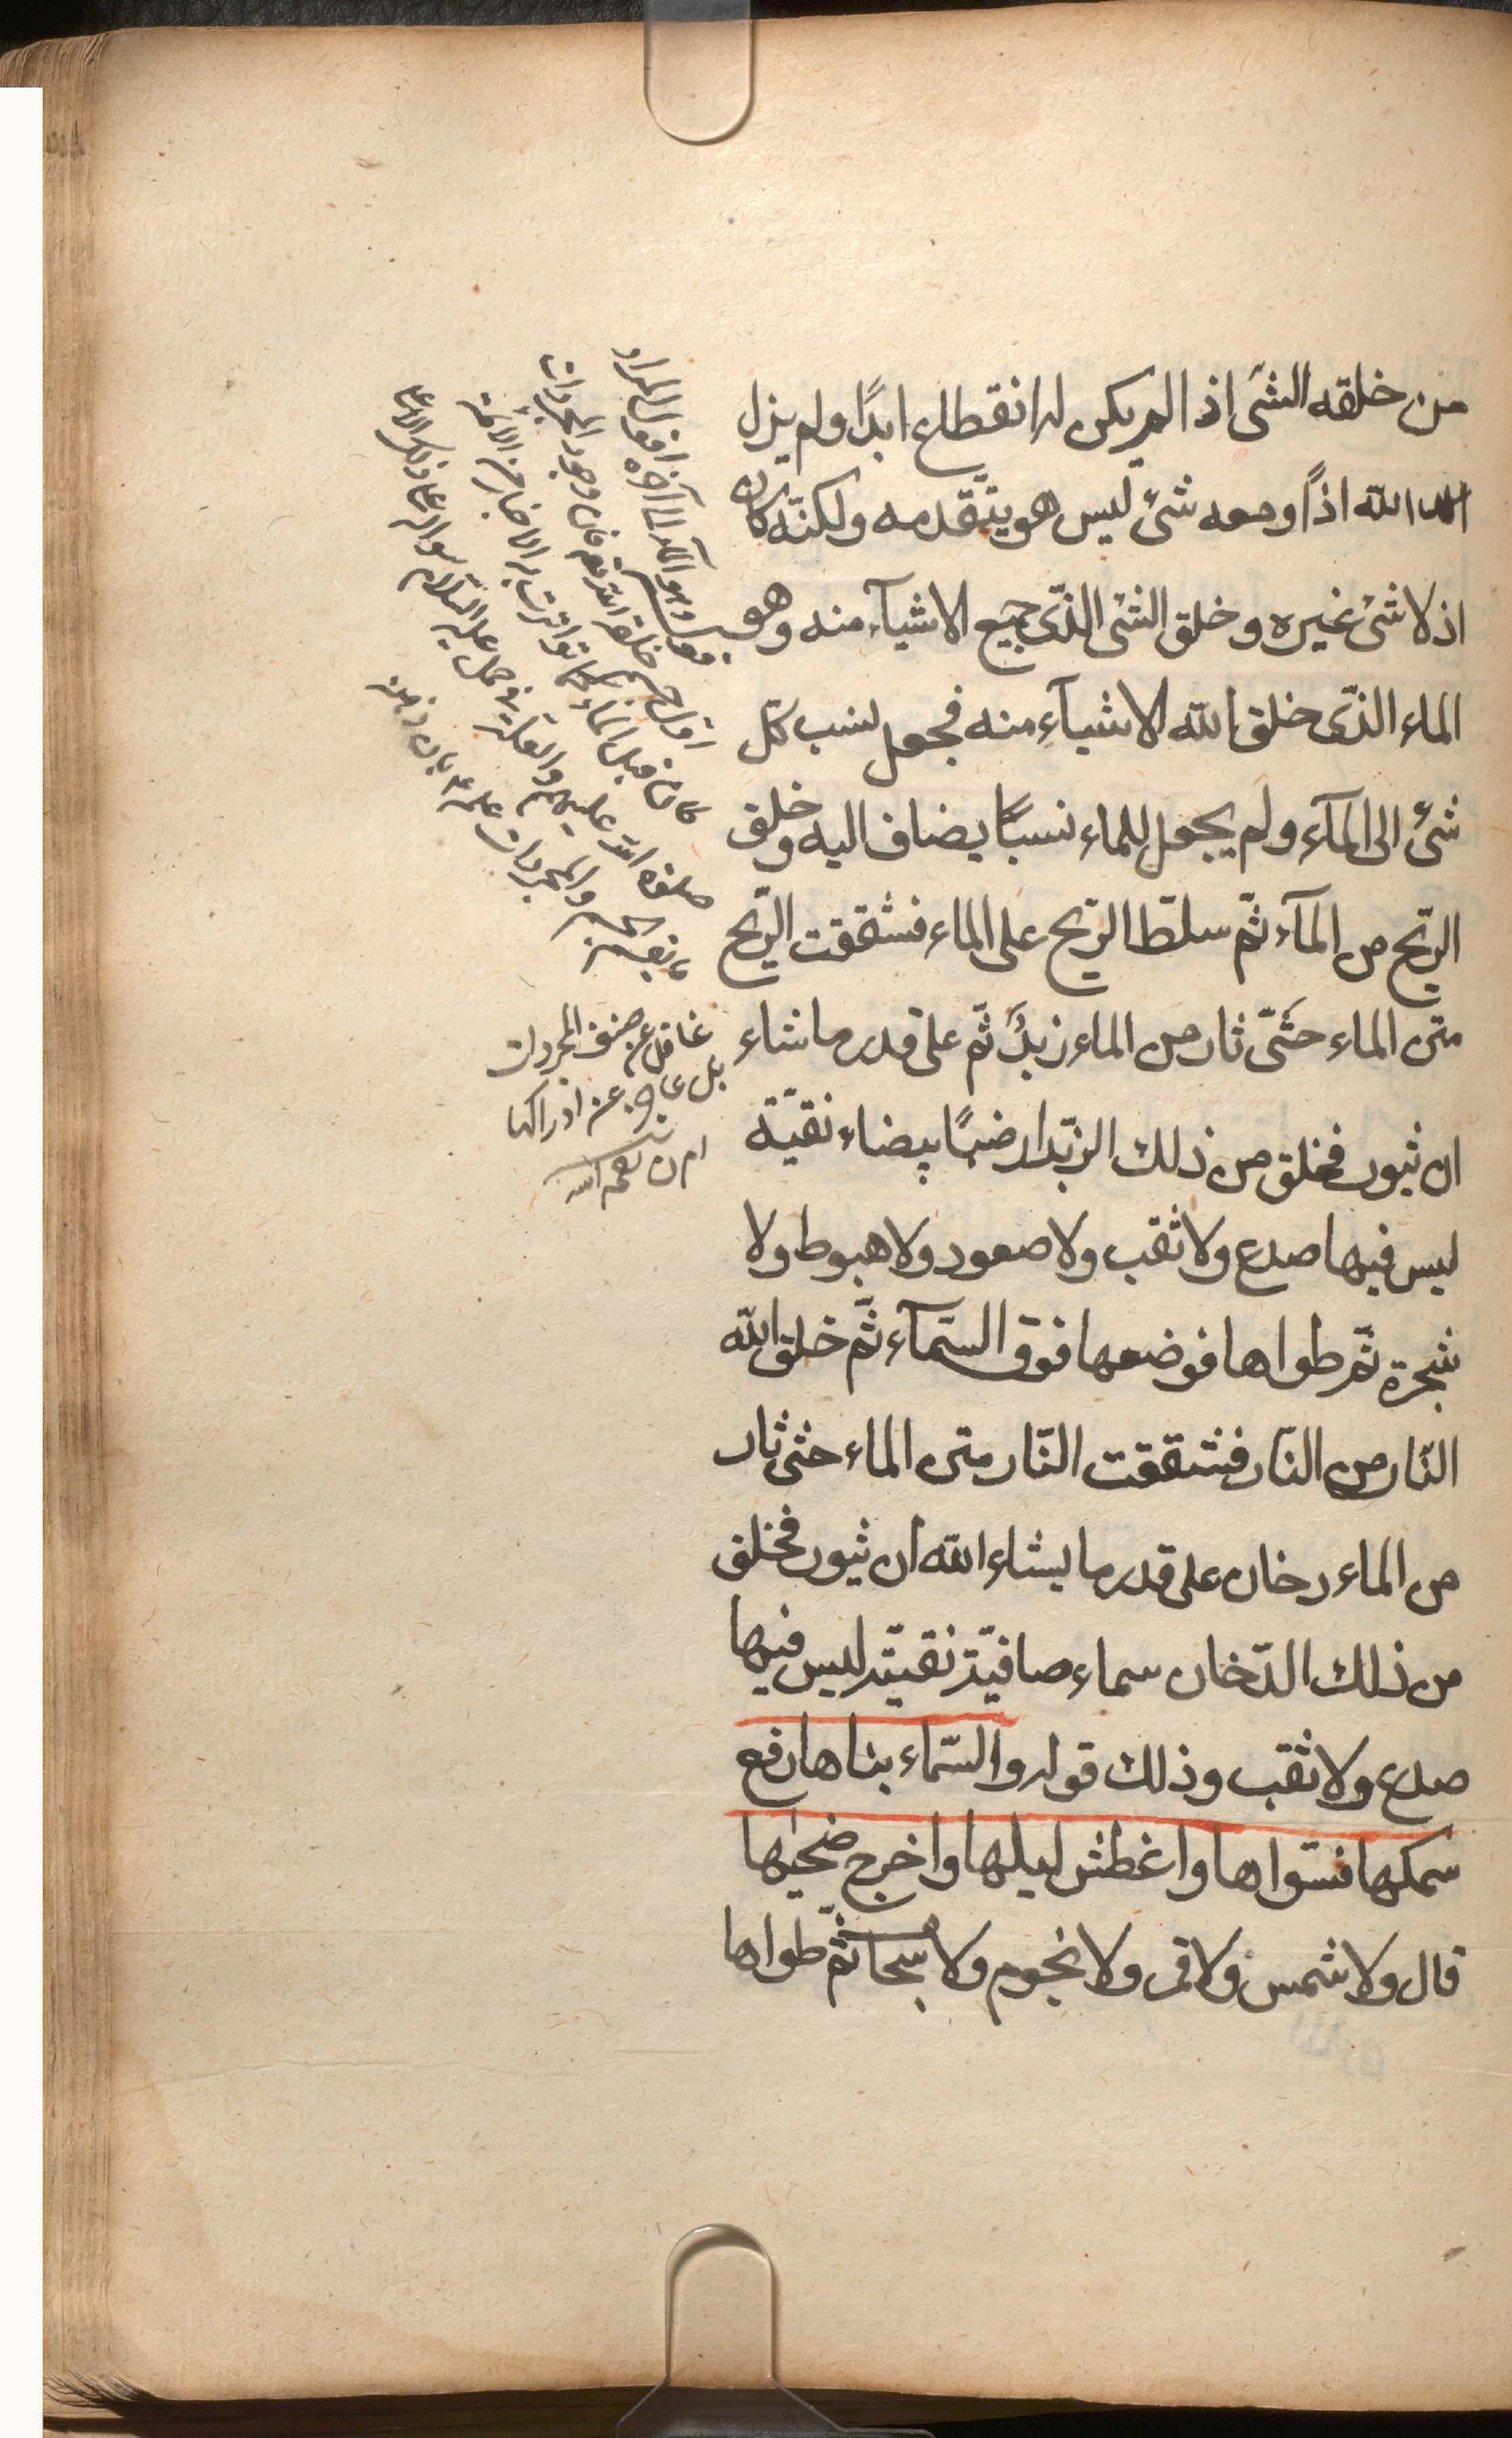 من خلقه الشئ اذا لم يكن له انقطاع ابدًا ولم يزل
الله اذًا ومعه شئ ليس هو يتقدمه ولكنّه كان
اذ لا شئ غيره وخلق الشئ الذّى جميع الاشيآء منه وهو
الماء الذّى خلق الله الاشيآء منه فجعل نسب كل
شئ الى المآء ولم يجعل للماء نسبًا يضاف اليه وخلق
الرّيح من المآء ثمّ سلّط الرّيح على الماء فشققت الرّيح
متن الماء حتّى ثار من الماء زبدٌ ثمّ على قدر ما شاء
ان يثور فخلق من ذلك الزّبد ارضًا بيضاء نقيّة
ليس فيها صدع ولا ثقب ولا صعود ولا هبوط ولا
شجرة ثمّ طواها فوضعها فوق السّمآء ثمّ خلق الله
النّار من النّار فشققت النّار متن الماء حتى ثار
من الماء دخان على قدر ما يشاء الله ان يثور فخلق
من ذلك الدّخان سماء صافيّة نقيّة ليس فيها
صدع ولا ثقب وذلك قوله والسّماء بناها رفع
سمكها فسّواها واغطش ليلها واخرج ضحيها
قال ولا شمس ولا قمر ولا نجوم ولا سحاب ثمّ طواها
وهو المآء الى آخره اقول المراد
اول جسم خلقه الله فان وجود المجردات
كان قبل الماء كما تواترت به الاخبار عن الأئمة
صلوة الله عليهم
غافل عن صنف المجردات
بل عاجز عن ادراكها